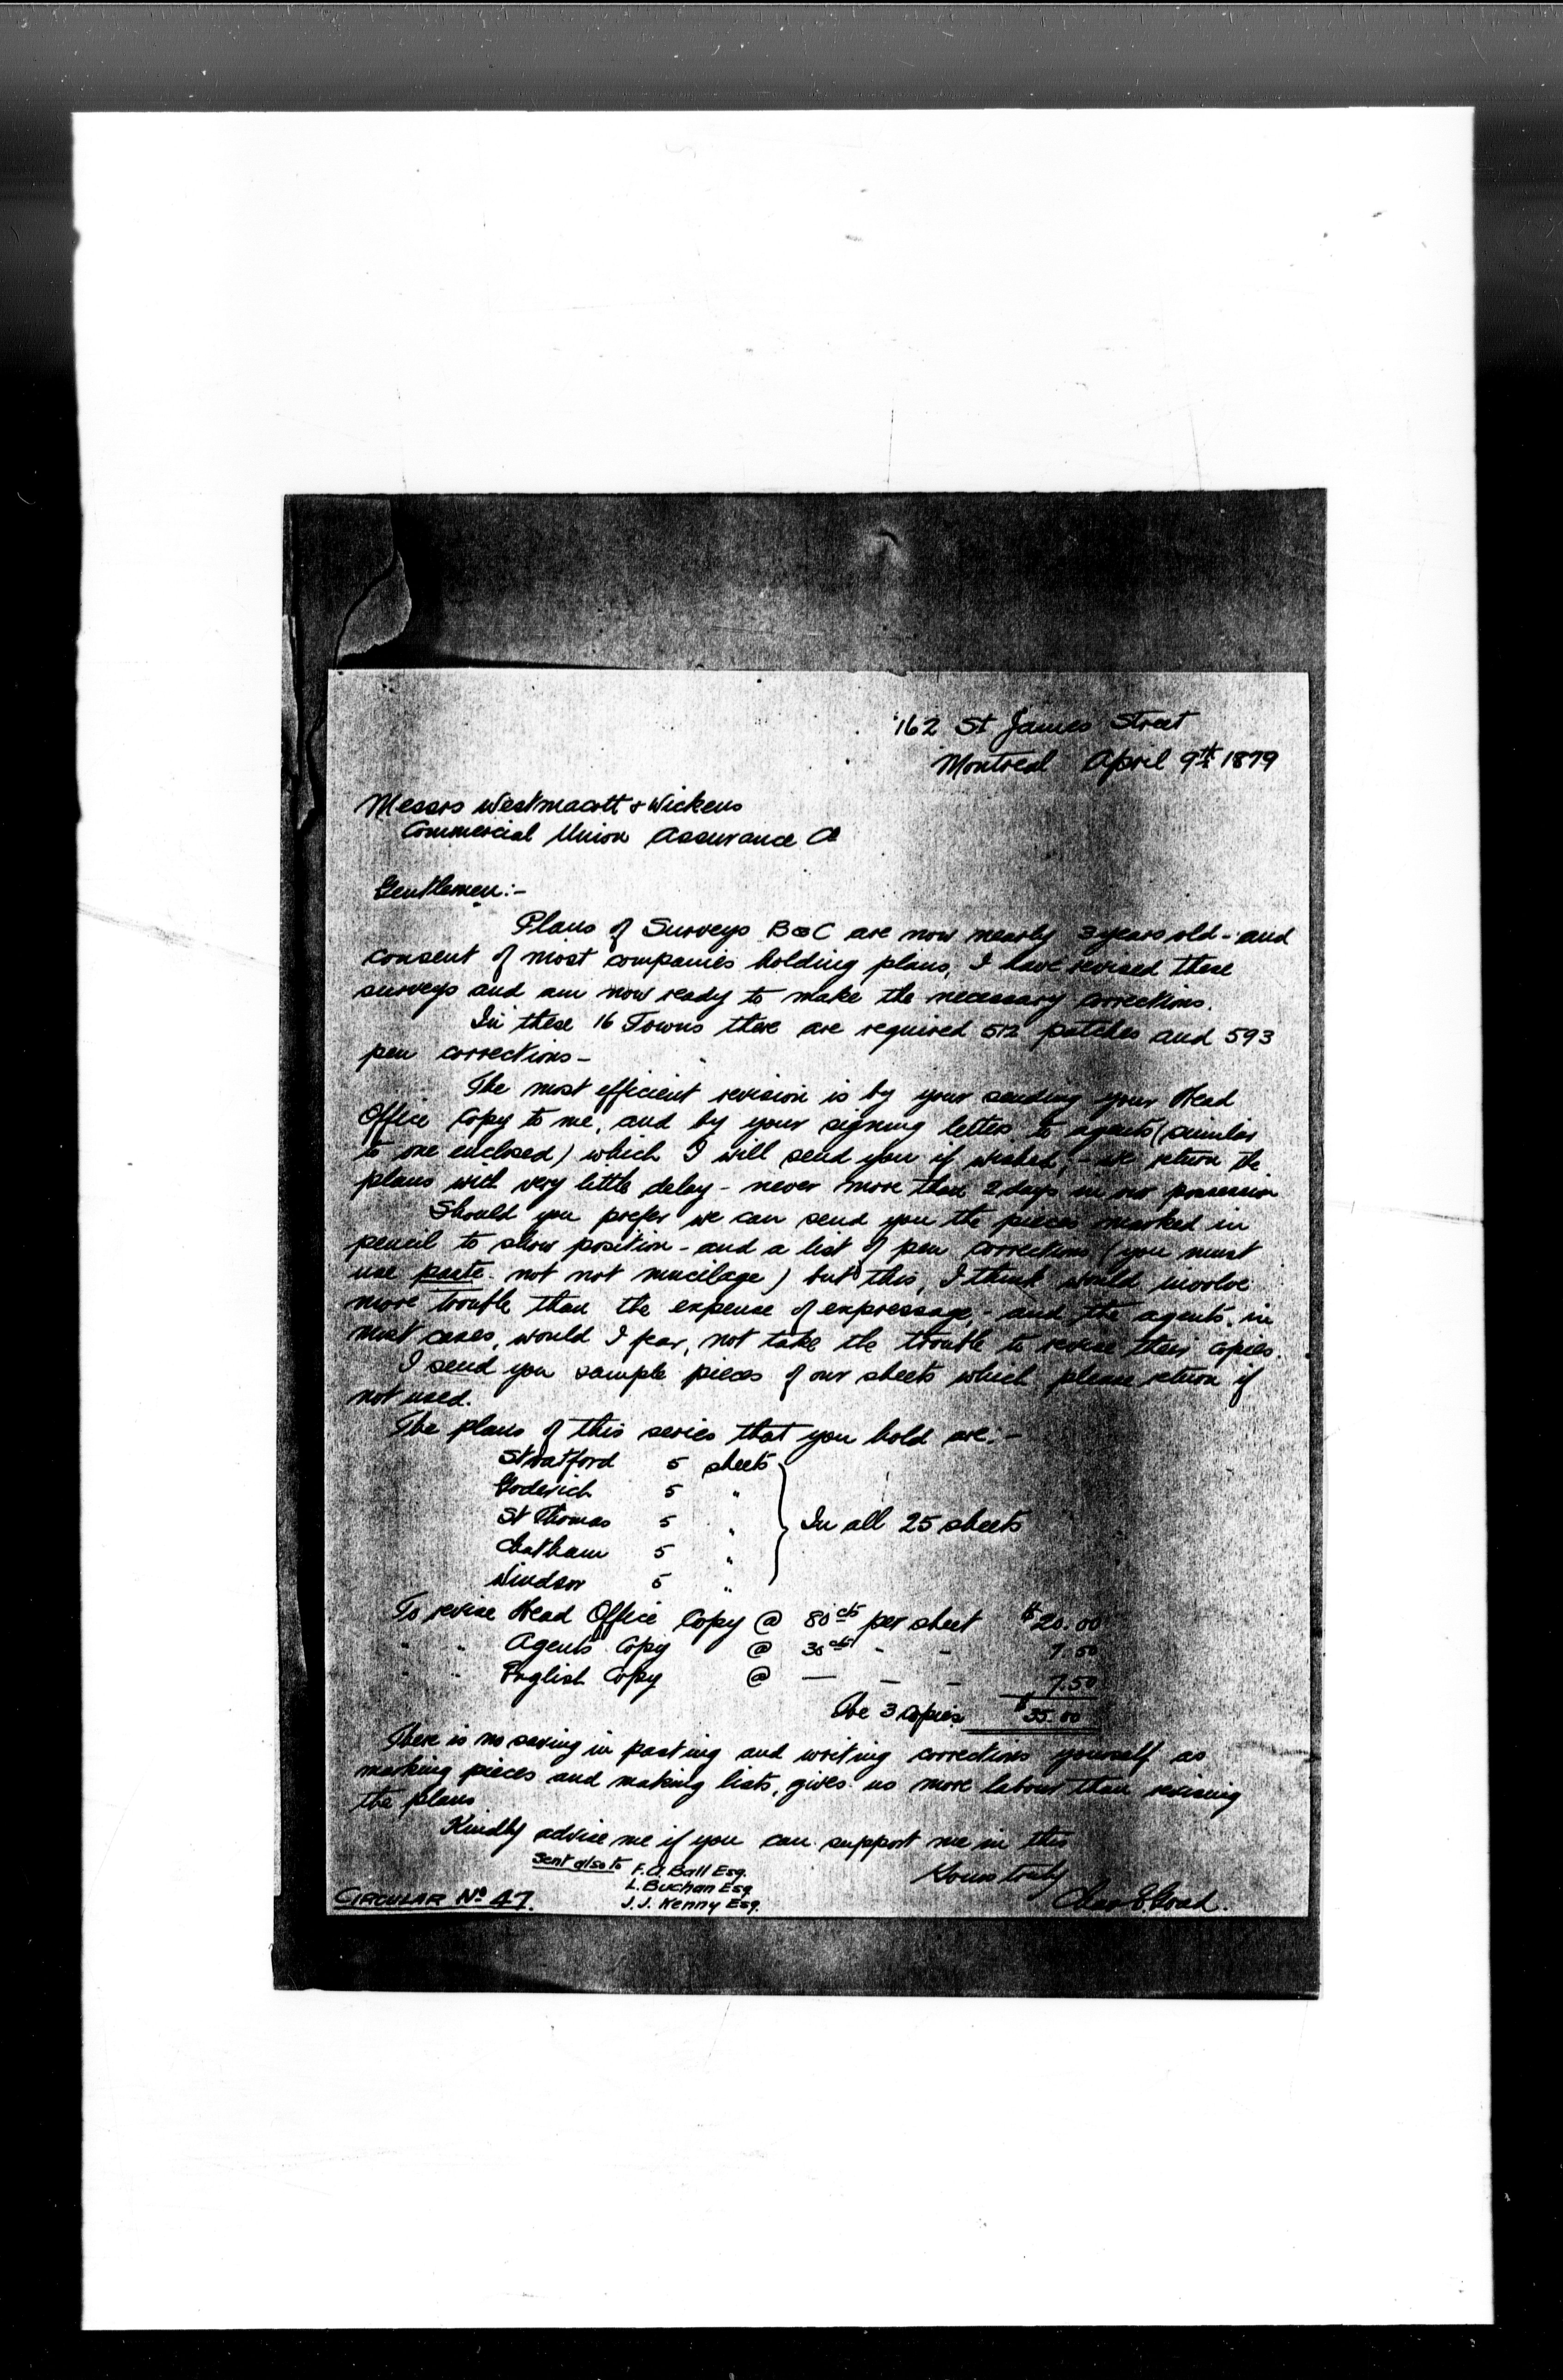 162 St James Street
Montreal April 9th 1879
Messrs Westmacott & Wickens
Commercial Union Assurance Co
Gentlemen:-
Plans of Surveys B & C are now nearly 3 years old - and
consent of most companies holding plans, I have revised these
surveys and am now ready to make the necessary corrections.
In these 16 Towns there are required 512 patches and 593
pen corrections -
The most efficient revision is by your sending your Head
Office Copy to me, and by your signing letters to agents (similar
to one enclosed) which I will send you if wished, - we return the
plans with very little delay - never more than 2 days in our possession
Should you prefer we can send you the pieces marked in
pencil to show position - and a list of pen corrections (you must
use paste not not mucilage) but this, I think would involve
more trouble than the expense of expressage, - and the agents, in
most cases, would I fear, not take the trouble to revise their copies.
I send you sample pieces of our sheets which please return if
not used.
The plans of this series that you hold are:-
Stratford 5 sheets
Goderich 5 "
St Thomas 5 " In all 25 sheets
Chatham 5 "
Windsor 5 "
To revise Head Office Copy @ 80 cts per sheet $20.00
" " Agents Copy @ 30 cts - - 7.50
" " English Copy @ — — — 7.50
The 3 Copies $35.00
There is no saving in pasting and writing corrections yourself as
marking pieces and making lists, gives us more labour than revising
the plans
Kindly advise me if you can support me in this
Yours truly
Chas E. Goad.
Sent also to F.A. Ball Esq.
L. Buchan Esq
J.J. Kenny Esq.
CIRCULAR No 47.